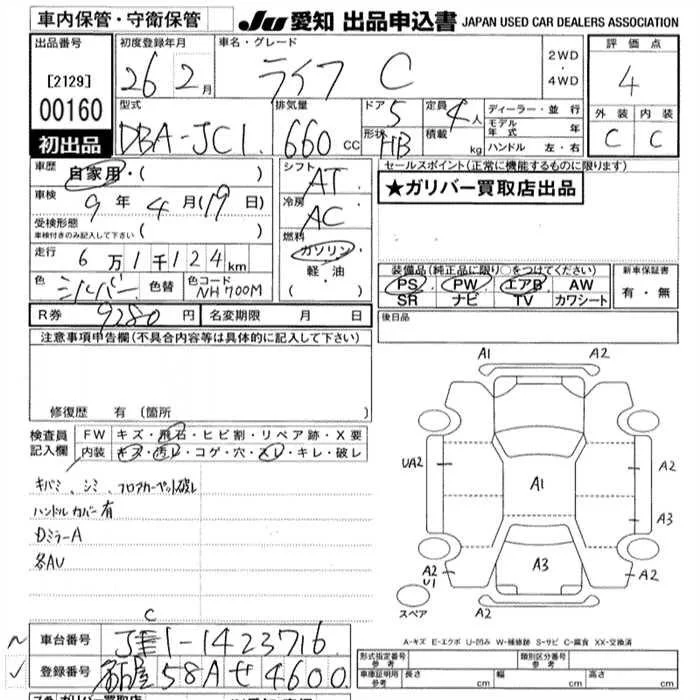 車内保管・守衛保管
JU 愛知 出品申込書 JAPAN USED CAR DEALERS ASSOCIATION
出品番号
[2129]
00160
初出品
初度登録年月
26 2月
車名・グレード
ライフ C
2WD
・
4WD
評価点
4
外装 内装
C C
型式
DBA-JC1
排気量
660 cc
ドア 5
形状 HB
定員 4人
積載 kg
ディーラー・並行
モデル年式 年
ハンドル 左・右
車歴 自家用・( )
車検 9年 4月(19日)
受検形態
車検付きのみ記入して下さい ( )
走行 6万1千124km
色 シルバー 色替 色コード NH700M
シフト AT
冷房 AC
燃料
ガソリン
軽・油
( )
セールスポイント(正常に機能するものに限ります)
★ガリバー買取店出品
装備品(純正品に限り○をつけてください)
PS PW エアB AW
SR ナビ TV カワシート
新車保証書
有・無
R券 9280円 名変期限 月 日
後日品
注意事項申告欄(不具合内容等は具体的に記入して下さい)
修復歴 有 〔箇所
検査員記入欄
FW キズ・飛石・ヒビ割・リペア跡・X要
内装 キズ・汚レ・コゲ・穴・スレ・キレ・破レ
キバミ、シミ、フロアカーペット破レ
ハンドルカバー有
DミラーA
各AU
A1 A2
UA2 A2
A1
A3
A3
A2 U1 A2
スペア
A-キズ E-エクボ U-凹み W-補修跡 S-サビ C-腐食 XX-交換済
C
車台番号 JE1-1423716
登録番号 名古屋 58A せ 4600
形式指定番号 参考
類別区分番号 参考
車庫証明用 参考 長さ cm 幅 cm 高さ cm